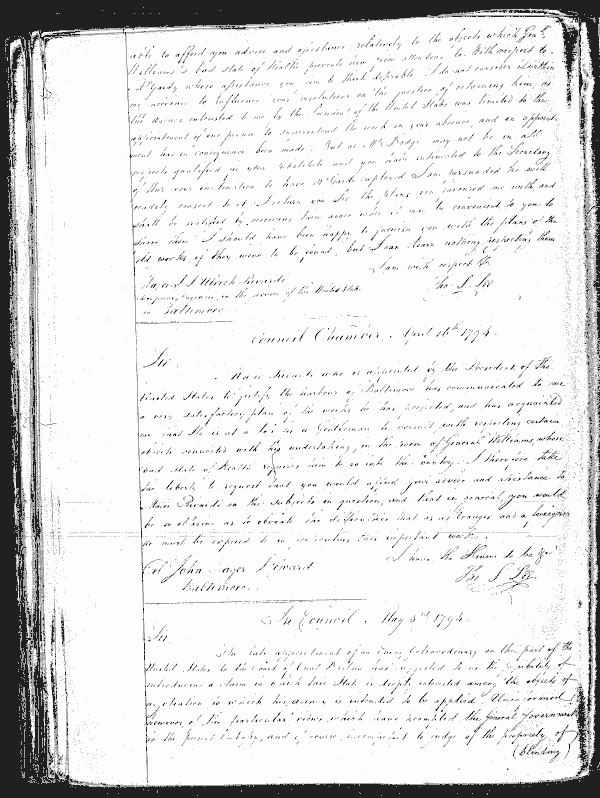 able to afford you advice and assistance relatively to the objects which Genl.
Williams's bad state of Health prevents him from attending to. With respect to
whose assistance you seem to think desirable I do not consider it within
my province to influence your resolutions on the question of retaining him, as
the agency entrusted to me by the President of the United States was limited to the
appointment of one person to superintend the work in your absence, and an appoint-
ment has in consequence been made. But as Mr. Dodge may not be in all
respects qualified as your substitute and you have intimated to the Secretary
of War your inclination to have employed I am persuaded he will
readily consent to it. I return you Sir the you favoured me with, and
shall be gratified by receiving them again when it may be convenient to you to
them. I should have been happy to furnish you with the plans of the
old works if they were to be found, but I can learn nothing respecting them
I am with respect &c
Major J J Ulrich Rivardi Tho S. Lee
temporary Engineer in the service of the United States
in Baltimore
Council Chamber. April 16th 1794.
Sir
Major Rivardi who is appointed by the President of the
United States to fortify the harbour of Baltimore has communicated to me
a very satisfactory plan of the works he has projected, and has acquainted
me that He is at a loss for a Gentleman to consult with respecting certain
objects connected with his undertaking, in the room of General Williams, whose
bad state of Health requires him to go into the Country. I therefore take
the liberty to request that you would afford your advice and assistance to
Major Rivardi on the subjects in question, and that in general you would
be so obliging as to obviate the difficulties that as a Stranger and a foreigner
he must be exposed to in executing this important work.
I have the Honor to be &c
Col. John Eager Howard Tho S. Lee
Baltimore
In Council. May 3rd 1794.
Sir
The late appointment of an Envoy Extraordinary on the part of the
United States to the Court of Great Britain has suggested to us the possibility of
introducing a claim in which this State is deeply interested among the objects of
negotiation to which his agency is intended to be applied. Uninformed
however of the particular views which have prompted the General Government
to the present Embassy, and of course incompetent to judge of the propriety of
(blending)